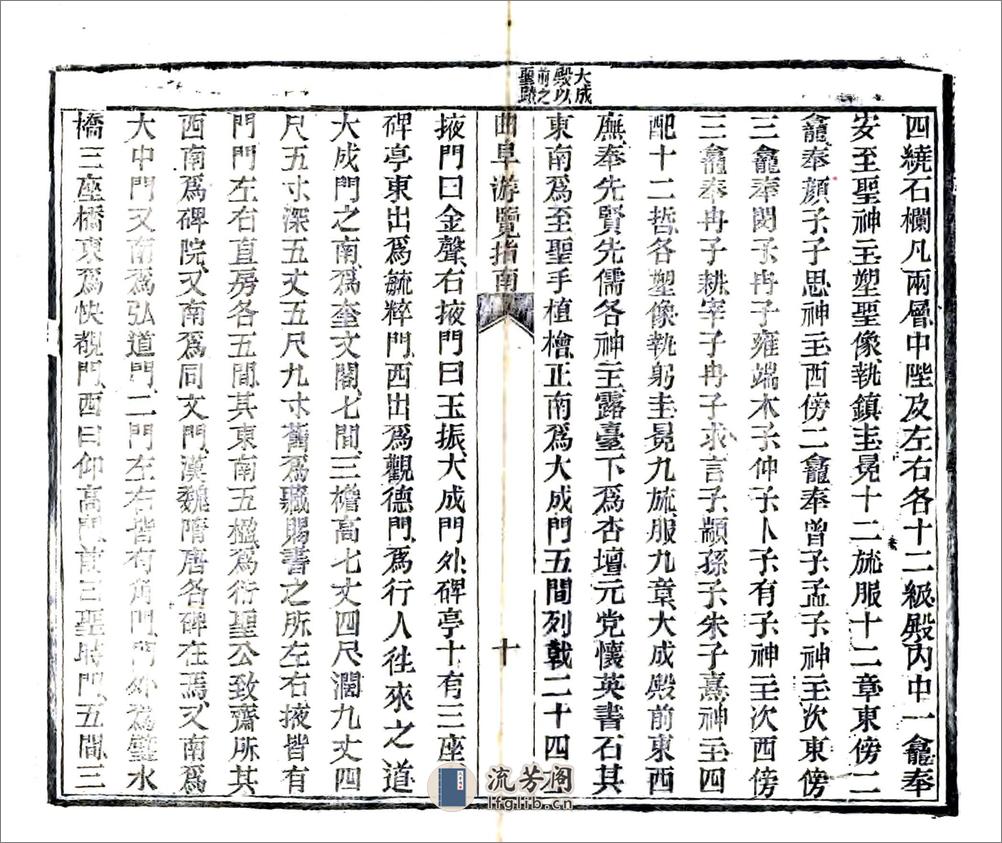 大成
殿以
前之
聖蹟
四繞石欄凡兩層中陛及左右各十二級殿內中一龕奉
安至聖神主塑聖像執鎮圭冕十二旒服十二章東傍二
龕奉顏子子思神主西傍二龕奉曾子孟子神主次東傍
三龕奉閔子冉子雍端木子仲子卜子有子神主次西傍
三龕奉冉子耕宰子冉子求言子顓孫子朱子熹神主四
配十二哲各塑像執躬圭冕九旒服九章大成殿前東西
廡奉先賢先儒各神主露臺下爲杏壇元党懷英書石其
東南爲至聖手植檜正南爲大成門五間列戟二十四左
曲阜游覽指南
十
掖門曰金聲右掖門曰玉振大成門外碑亭十有三座
碑亭東出爲毓粹門西出爲觀德門爲行人徃來之道
大成門之南爲奎文閣七間三檐高七丈四尺濶九丈四
尺五寸深五丈五尺九寸舊爲藏賜書之所左右掖皆有
門門左右直房各五間其東南五楹爲衍聖公致齋所其
西南爲碑院又南爲同文門漢魏隋唐各碑在焉又南爲
大中門又南爲弘道門二門左右皆有角門門外爲璧水
橋三座橋東爲快覩門西曰仰高門前三聖時門五間三
流芳阁
lfglib.cn